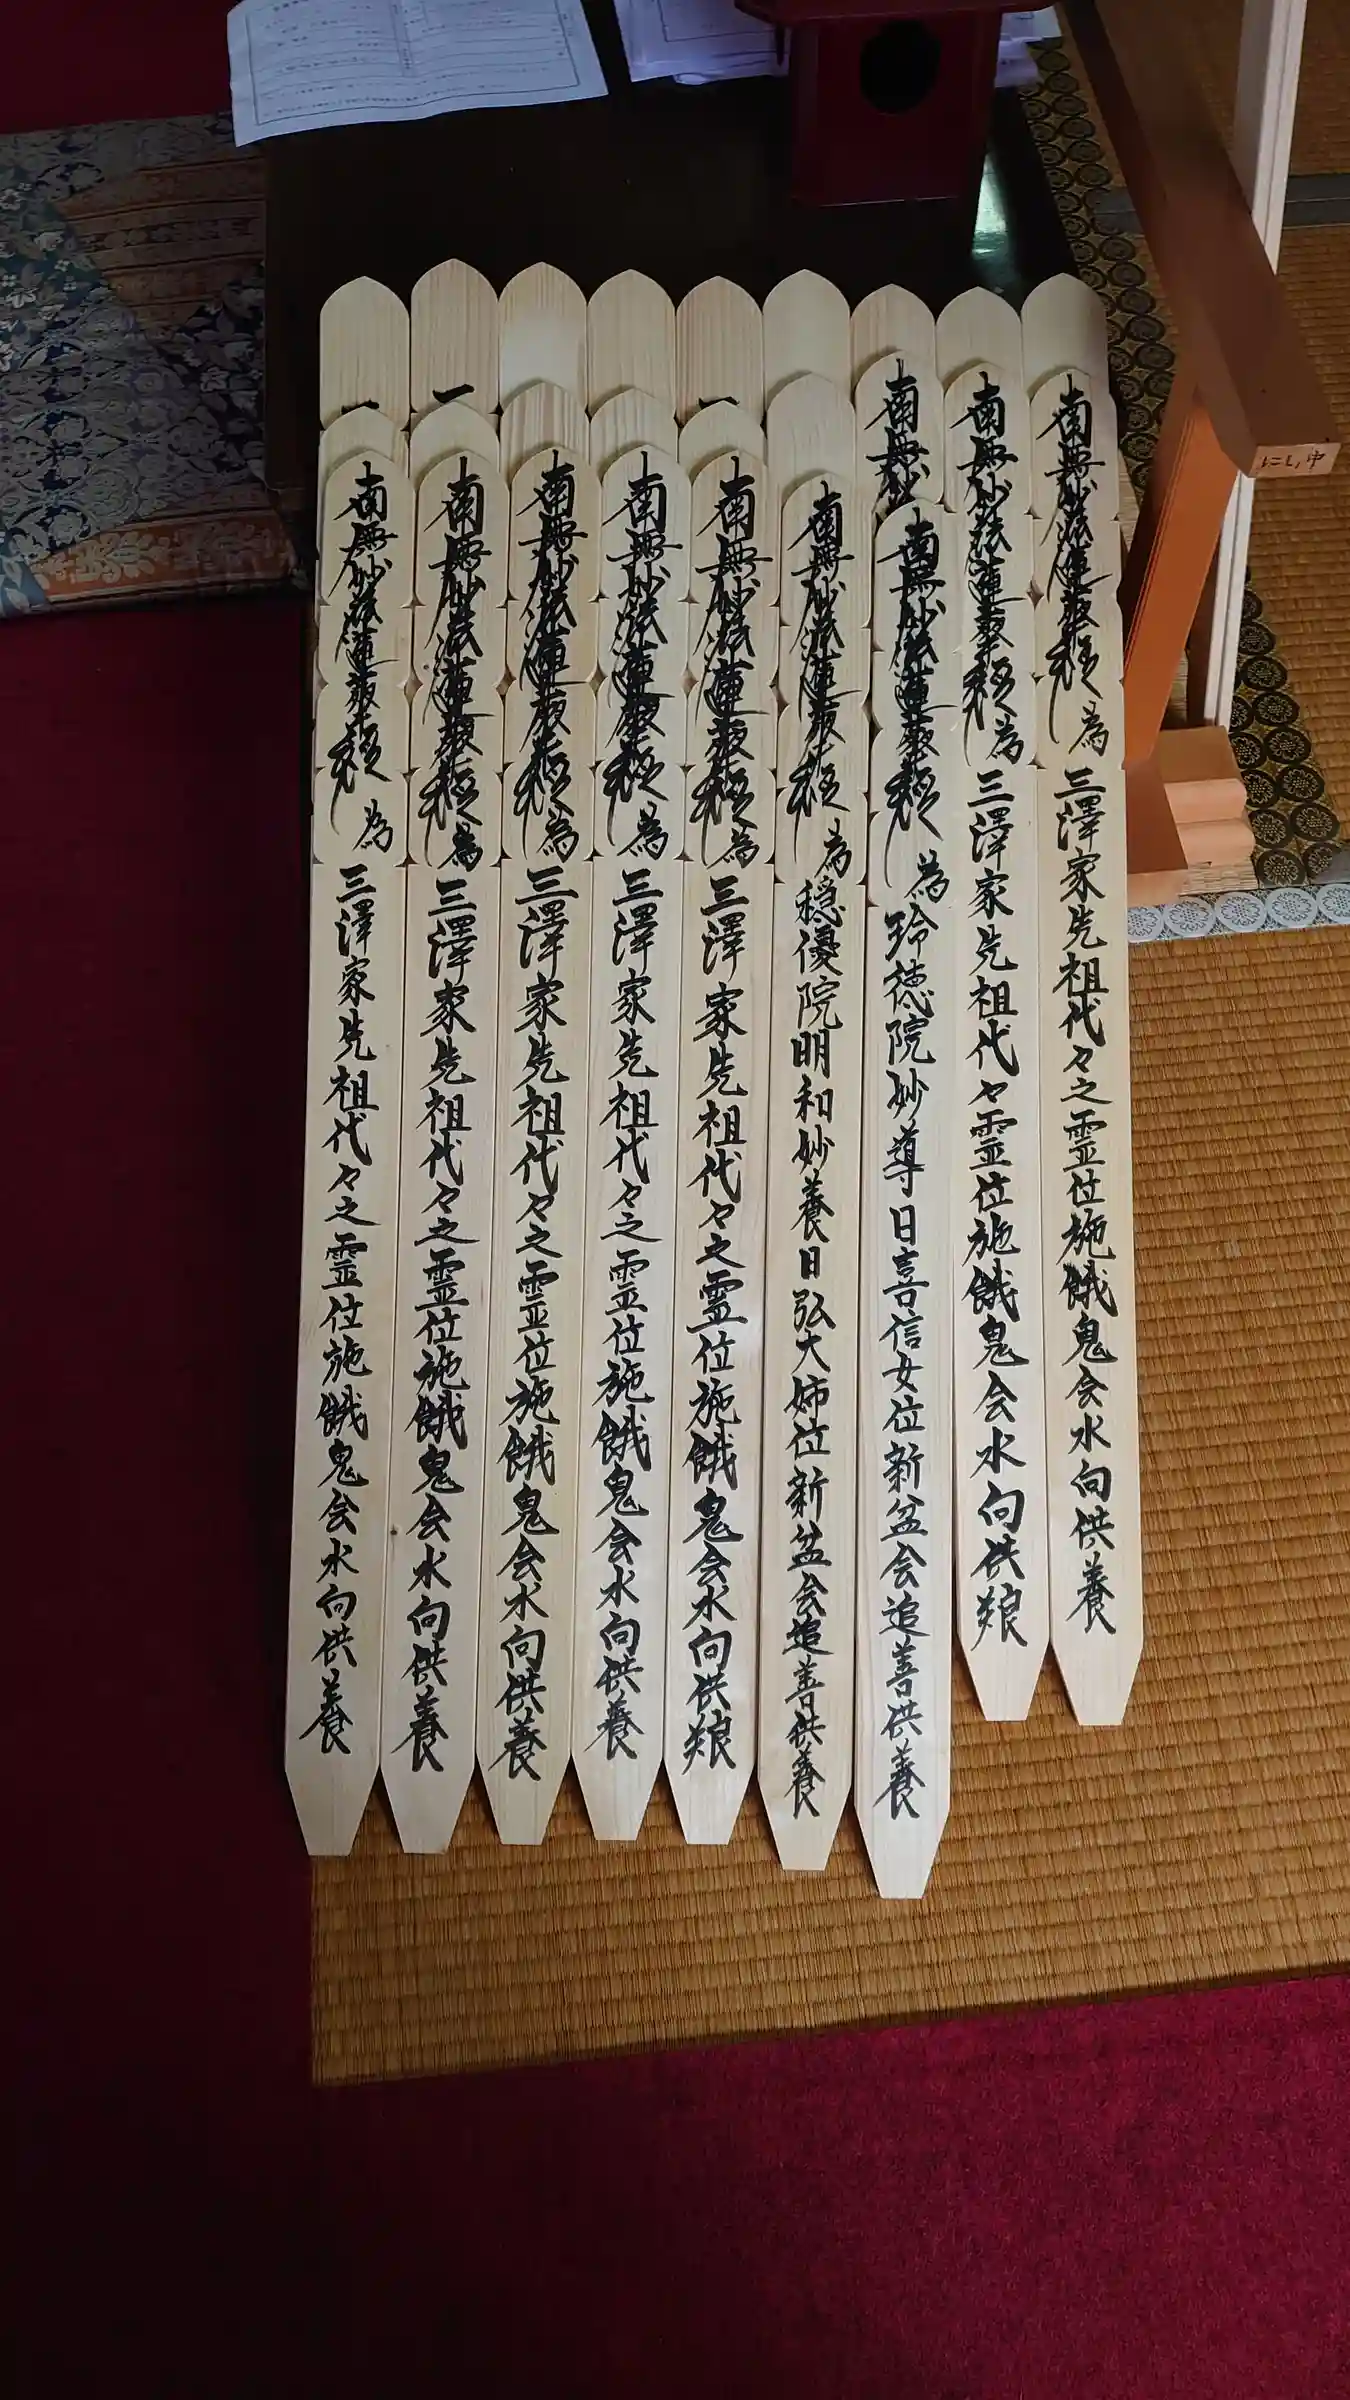 南無妙法蓮華経 為 三澤家先祖代々之霊位施餓鬼会水向供養
南無妙法蓮華経 為 三澤家先祖代々霊位施餓鬼会水向供粮
南無妙
南無妙法蓮華経 為 玲徳院妙導日喜信女位新盆会追善供養
南無妙法蓮華経 為 穏優院明和妙養日弘大姉位新盆会追善供養
南無妙法蓮華経 為 三澤家先祖代々之霊位施餓鬼会水向供粮
南無妙法蓮華経 為 三澤家先祖代々之霊位施餓鬼会水向供養
南無妙法蓮華経 為 三澤家先祖代々之霊位施餓鬼会水向供養
南無妙法蓮華経 為 三澤家先祖代々之霊位施餓鬼会水向供養
南無妙法蓮華経 為 三澤家先祖代々之霊位施餓鬼会水向供養